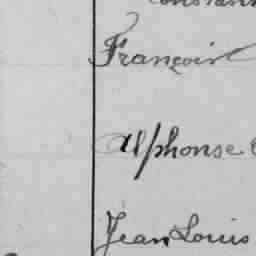 François
Alphonse
Jean Louis